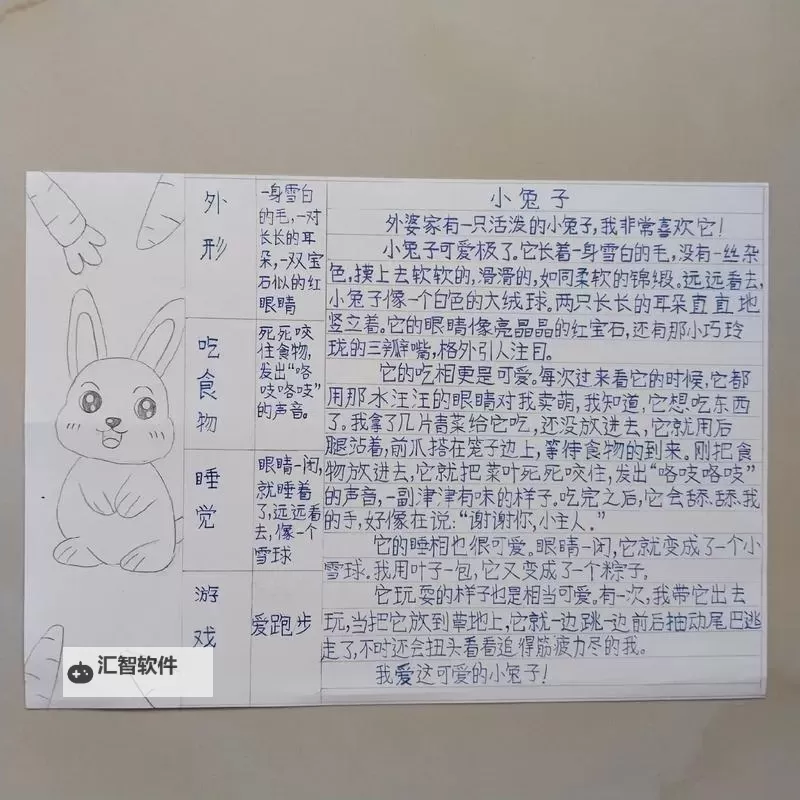 外
形
一身雪白
的毛,一对
长长的耳
朵,一双宝
石似的红
眼睛
吃
食
物
死死咬
住食物,
发出“咯
吱咯吱”
的声音。
睡
觉
眼睛一闭,
就睡着
了,远远看
去,像一个
雪球
游
戏
爱跑步
小兔子
外婆家有一只活泼的小兔子,我非常喜欢它!
小兔子可爱极了。它长着一身雪白的毛,没有一丝杂
色,摸上去软软的,滑滑的,如同柔软的锦缎。远远看去,
小兔子像一个白色的大绒球。两只长长的耳朵直直地
竖立着。它的眼睛像亮晶晶的红宝石,还有那小巧玲
珑的三瓣嘴,格外引人注目。
它的吃相更是可爱。每次过来看它的时候,它都
用那水汪汪的眼睛对我卖萌,我知道,它想吃东西
了。我拿了几片青菜给它吃,还没放进去,它就用后
腿站着,前爪搭在笼子边上,等待食物的到来。刚把食
物放进去,它就把菜叶死死咬住,发出“咯吱咯吱”
的声音,一副津津有味的样子。吃完之后,它会舔舔我
的手,好像在说:“谢谢你,小主人。”
它的睡相也很可爱。眼睛一闭,它就变成了一个小
雪球。我用叶子一包,它又变成了一个粽子。
它玩耍的样子也是相当可爱。有一次,我带它出去
玩,当把它放到草地上,它就一边跳一边前后抽动尾巴逃
走了,不时还会扭头看看追得筋疲力尽的我。
我爱这可爱的小兔子!
汇智软件